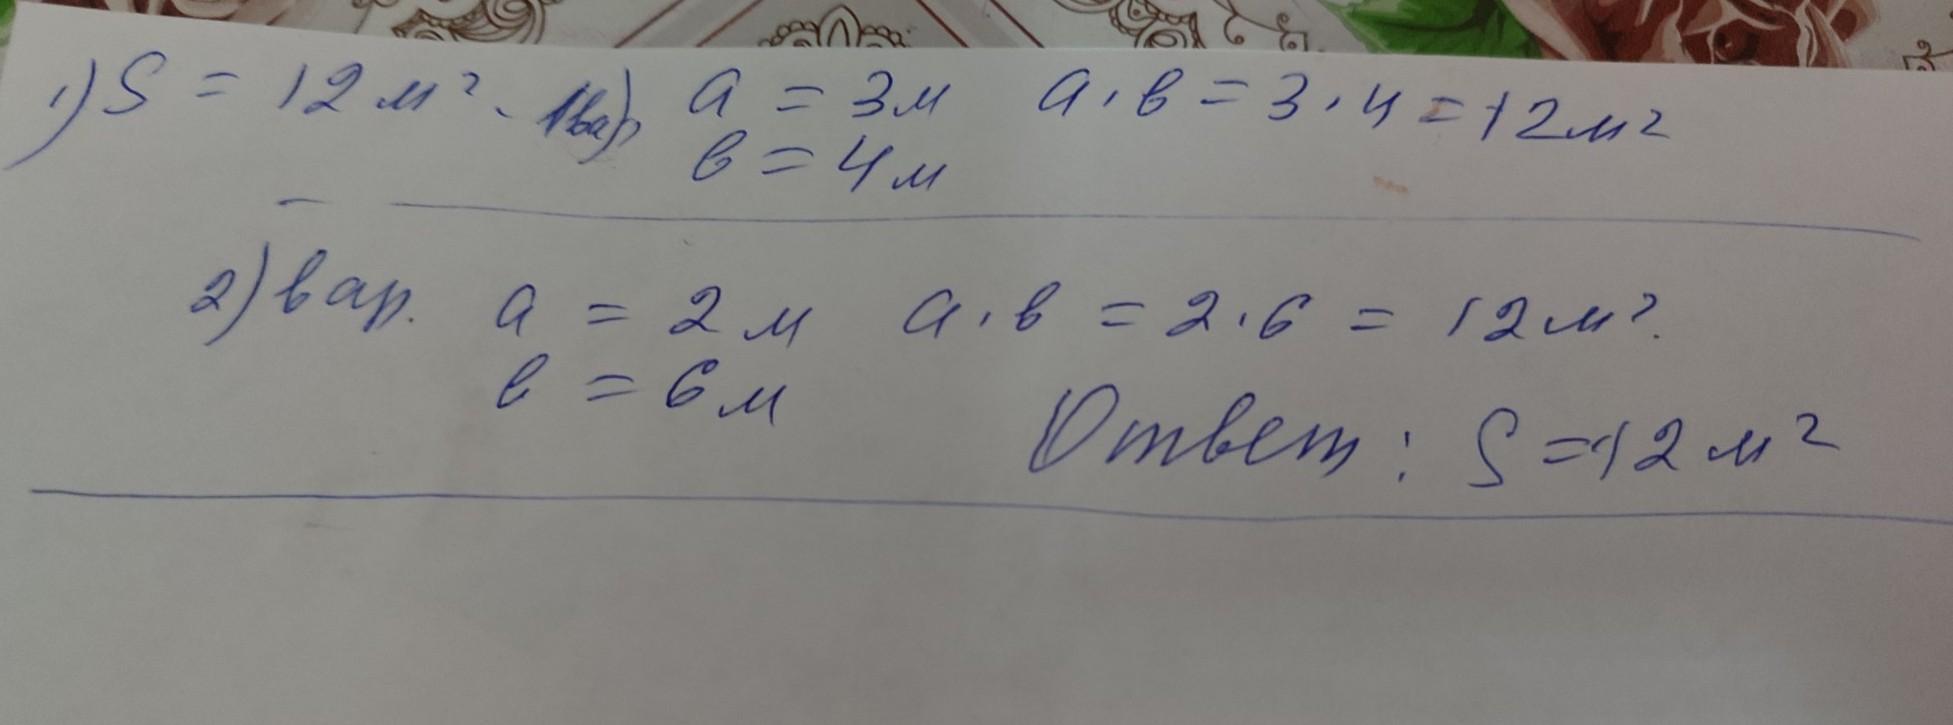 1) S = 12 м². 1вар) a = 3м a · в = 3 · 4 = 12м²
в = 4м
2) вар. a = 2м a · в = 2 · 6 = 12м².
в = 6м
Ответ: S = 12м²